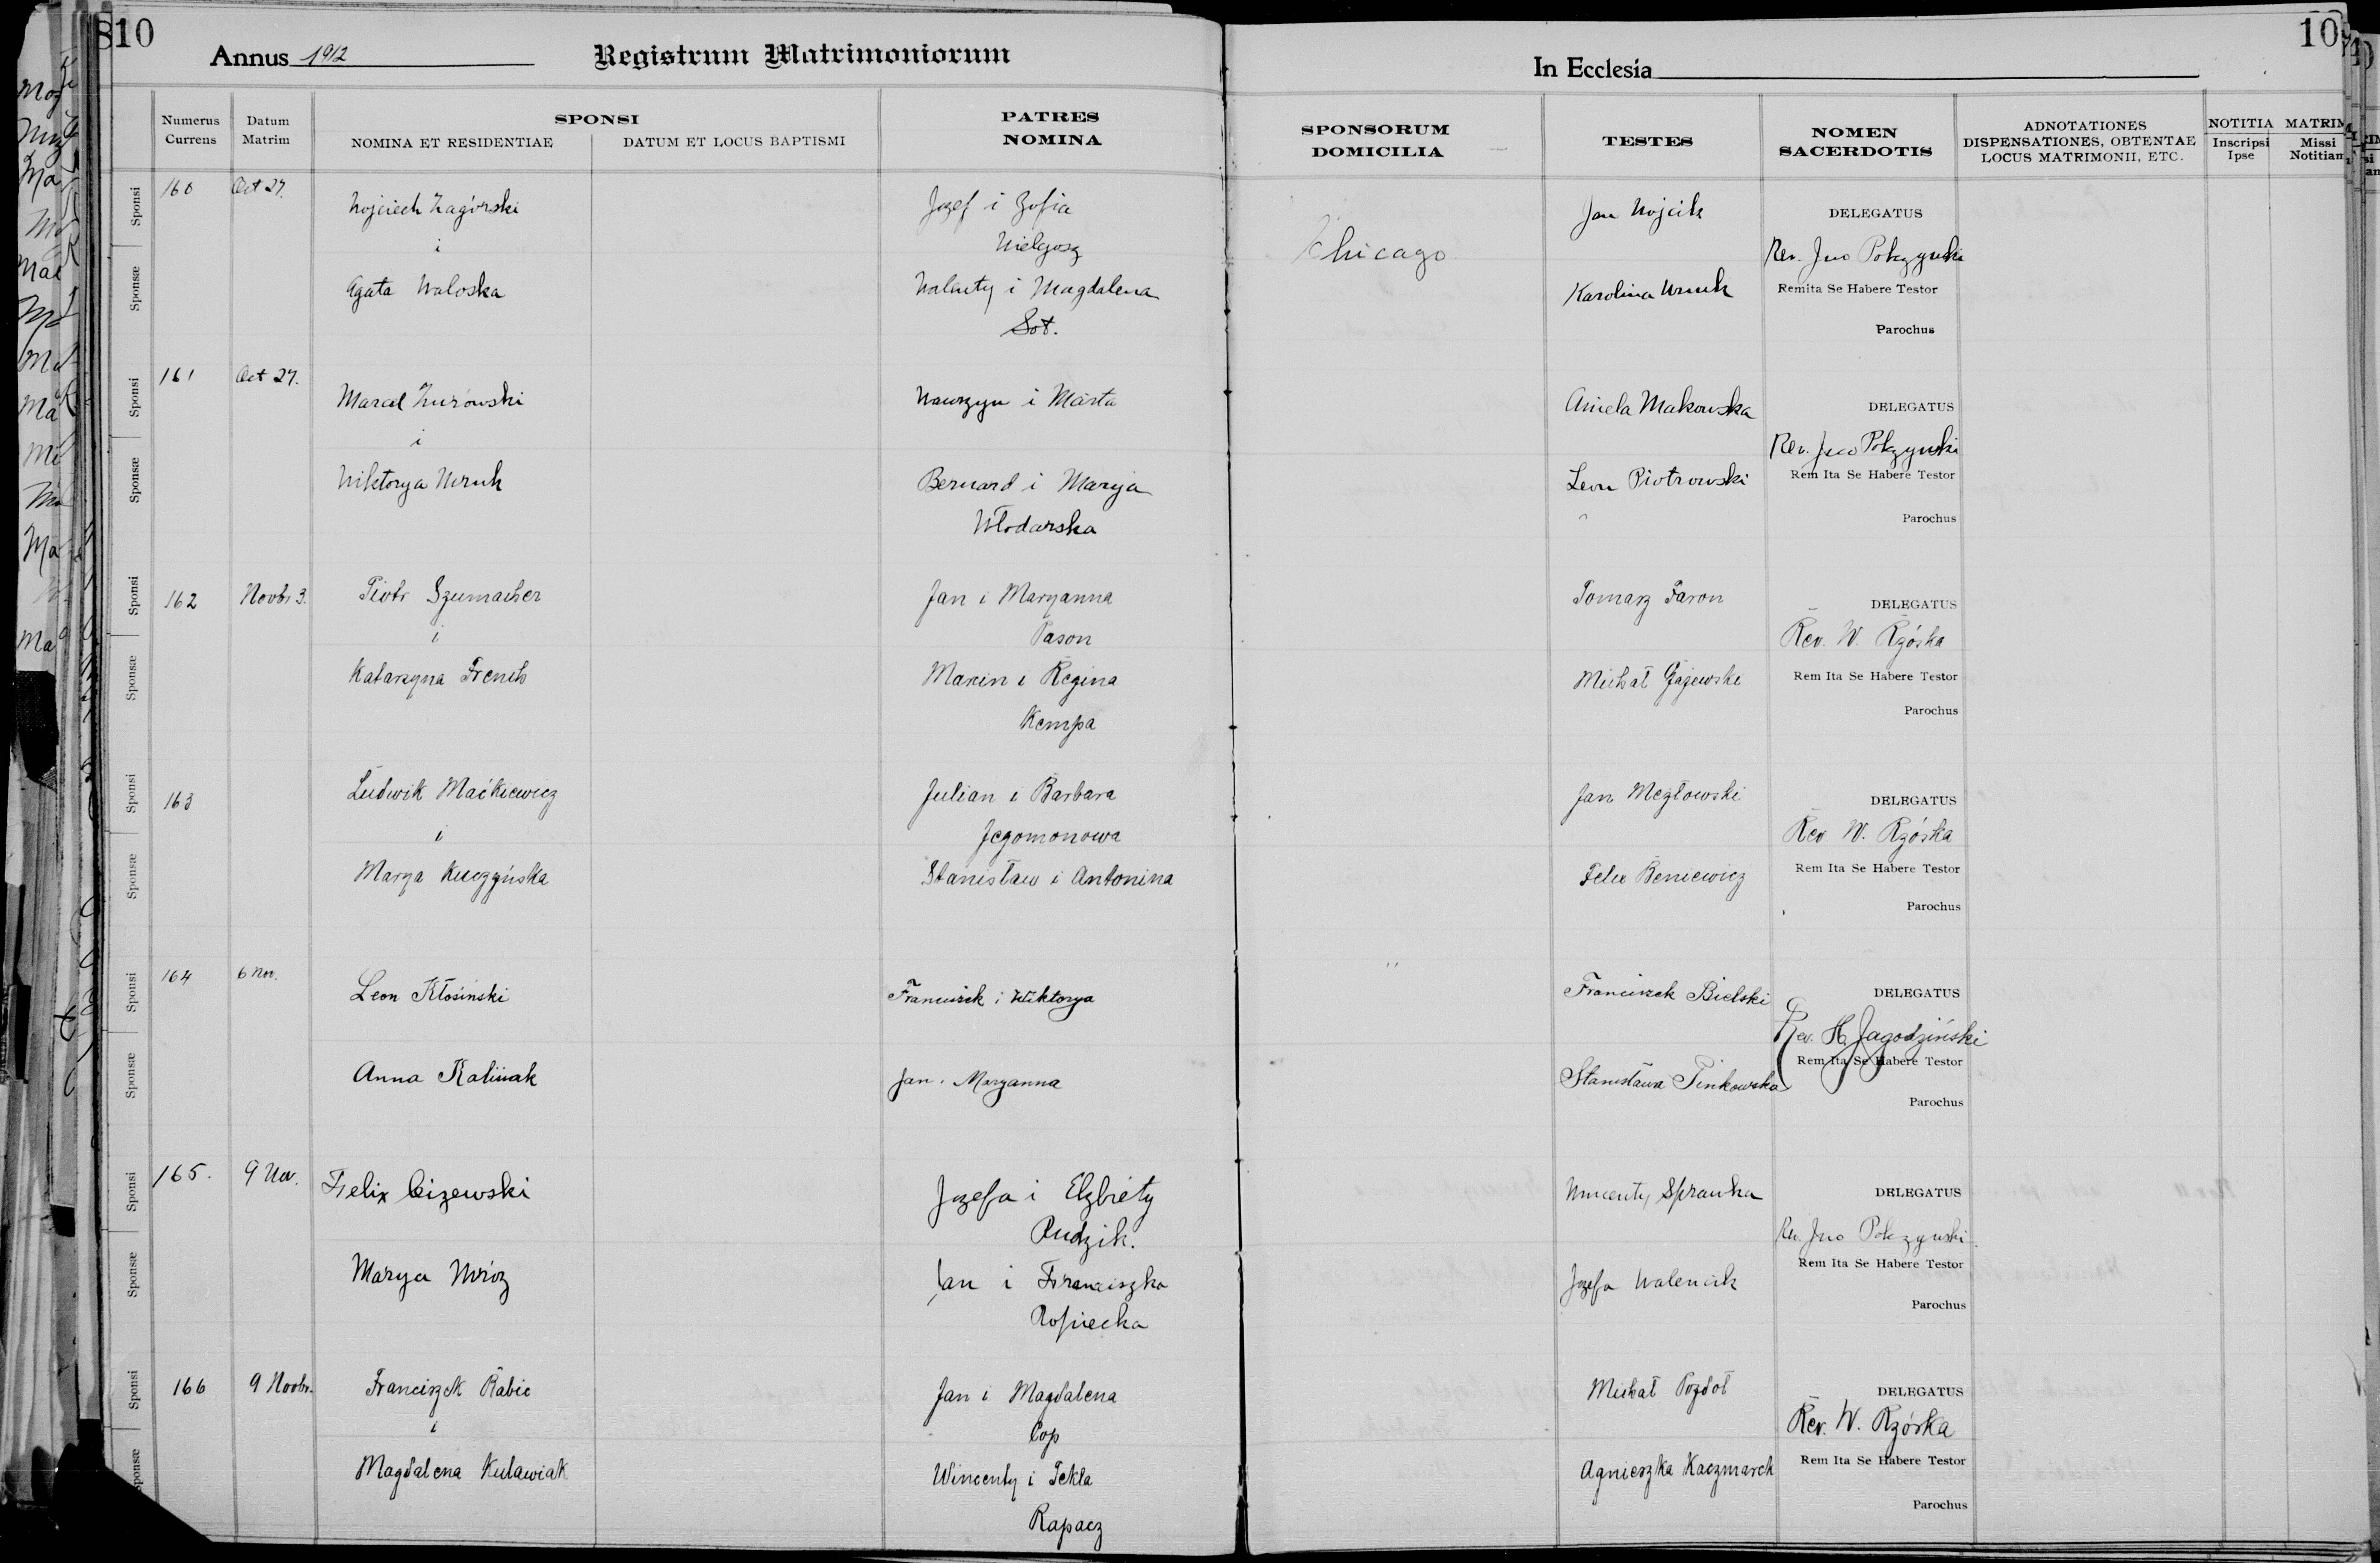 10
Annus 1912
Registrum Matrimoniorum
In Ecclesia
Numerus Currens
Datum Matrim
SPONSI
NOMINA ET RESIDENTIAE
DATUM ET LOCUS BAPTISMI
PATRES NOMINA
SPONSORUM DOMICILIA
TESTES
NOMEN SACERDOTIS
ADNOTATIONES
DISPENSATIONES, OBTENTAE
LOCUS MATRIMONII, ETC.
NOTITIA MATRIM
Inscripsi Ipse
Missi Notitiam
Sponsi
160 Oct 27.
Wojciech Zagórski
Jozef i Zofia
Jan Wojcik
DELEGATUS
i
Wielgosz
Chicago
Rev. Jno Polczynski
Sponsæ
Agata Waloska
Walenty i Magdalena
Karolina Wruck
Remita Se Habere Testor
Sot.
Parochus
Sponsi
161 Oct 27.
Marcel Zurowski
Wawrzyn i Marta
Aniela Makowska
DELEGATUS
i
Rev. Jno Polczynski
Sponsæ
Wiktorya Wruk
Bernard i Marya
Leon Piotrowski
Rem Ita Se Habere Testor
Włodarska
Parochus
Sponsi
162 Novbr 3.
Piotr Szumacher
Jan i Maryanna
Tomasz Faron
DELEGATUS
i
Pason
Rev. W. Rzóska
Sponsæ
Katarzyna French
Marcin i Regina
Michał Gajewski
Rem Ita Se Habere Testor
Kempa
Parochus
Sponsi
163
Ludwik Maćkiewicz
Julian i Barbara
Jan Męzłowski
DELEGATUS
i
Jegomonowa
Rev. W. Rzóska
Sponsæ
Marya Kuczyńska
Stanisław i Antonina
Felix Beniewicz
Rem Ita Se Habere Testor
Parochus
Sponsi
164 6 Nov.
Leon Kłosinski
Franciszek i Wiktorya
"
Franciszek Bielski
DELEGATUS
Rev. H. Jagodziński
Sponsæ
Anna Kaliniak
Jan i Maryanna
Stanisława Pinkowska
Rem Ita Se Habere Testor
Parochus
Sponsi
165. 9 Nov.
Felix Cizewski
Jozefa i Elzbiety
Wincenty Sprawka
DELEGATUS
Pudzik.
Rev. Jno Polczynski
Sponsæ
Marya Mróz
Jan i Franciszka
Jozefa Walencik
Rem Ita Se Habere Testor
Rosiecka
Parochus
Sponsi
166 9 Novbr.
Franciszek Babic
Jan i Magdalena
Michał Pozdoł
DELEGATUS
i
Cop
Rev. W. Rzóska
Sponsæ
Magdalena Kulawiak
Wincenty i Tekla
Agnieszka Kaczmarek
Rem Ita Se Habere Testor
Rapacz
Parochus